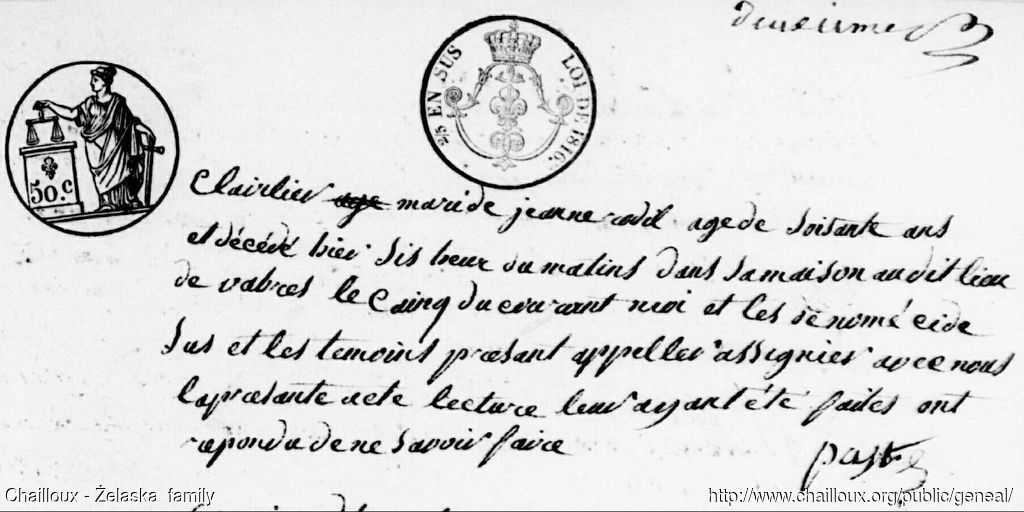 deuxieme
2/5 EN SUS LOI DE 1816.
50. c
Clairlier age mari de jeanne agé de soisante ans
et décédé hier sis heur du matins dans sa maison audit lieu
de vabres le cainq du courant moi et les dénomé ci de
sus et les temoins præsant appeller assignier avec nous
la præsante acte lecture leur ayant été faites ont
repondu de ne savoir faire
Chailloux - Želaska family
http://www.chailloux.org/public/geneal/